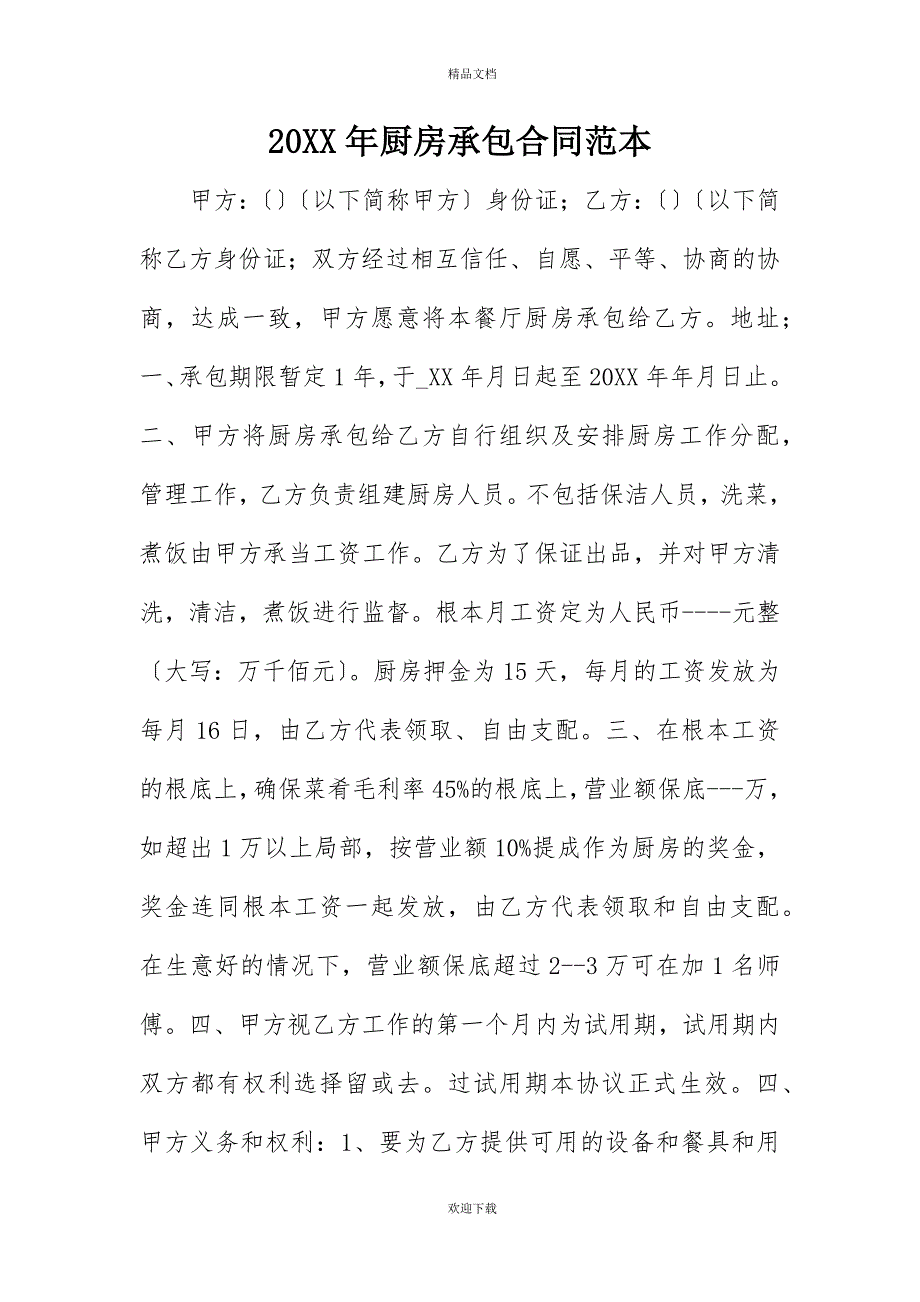 精品文档
20XX年厨房承包合同范本
甲方：〔〕〔以下简称甲方〕身份证；乙方：〔〕〔以下简
称乙方身份证；双方经过相互信任、自愿、平等、协商的协
商，达成一致，甲方愿意将本餐厅厨房承包给乙方。地址；
一、承包期限暂定1年，于_XX年月日起至20XX年年月日止。
二、甲方将厨房承包给乙方自行组织及安排厨房工作分配，
管理工作，乙方负责组建厨房人员。不包括保洁人员，洗菜，
煮饭由甲方承当工资工作。乙方为了保证出品，并对甲方清
洗，清洁，煮饭进行监督。根本月工资定为人民币----元整
〔大写：万千佰元〕。厨房押金为15天，每月的工资发放为
每月16日，由乙方代表领取、自由支配。三、在根本工资
的根底上，确保菜肴毛利率45%的根底上，营业额保底---万，
如超出1万以上局部，按营业额10%提成作为厨房的奖金，
奖金连同根本工资一起发放，由乙方代表领取和自由支配。
在生意好的情况下，营业额保底超过2--3万可在加1名师
傅。四、甲方视乙方工作的第一个月内为试用期，试用期内
双方都有权利选择留或去。过试用期本协议正式生效。四、
甲方义务和权利：1、要为乙方提供可用的设备和餐具和用
欢迎下载